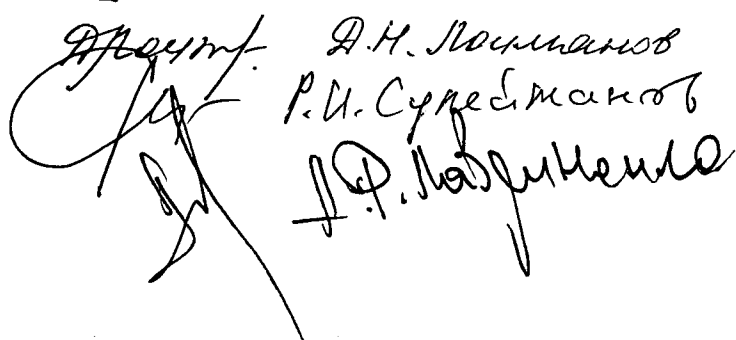 Д.Н. Лоцманов
Р.И. Сулейманов
Д.Ф. Лавриненко